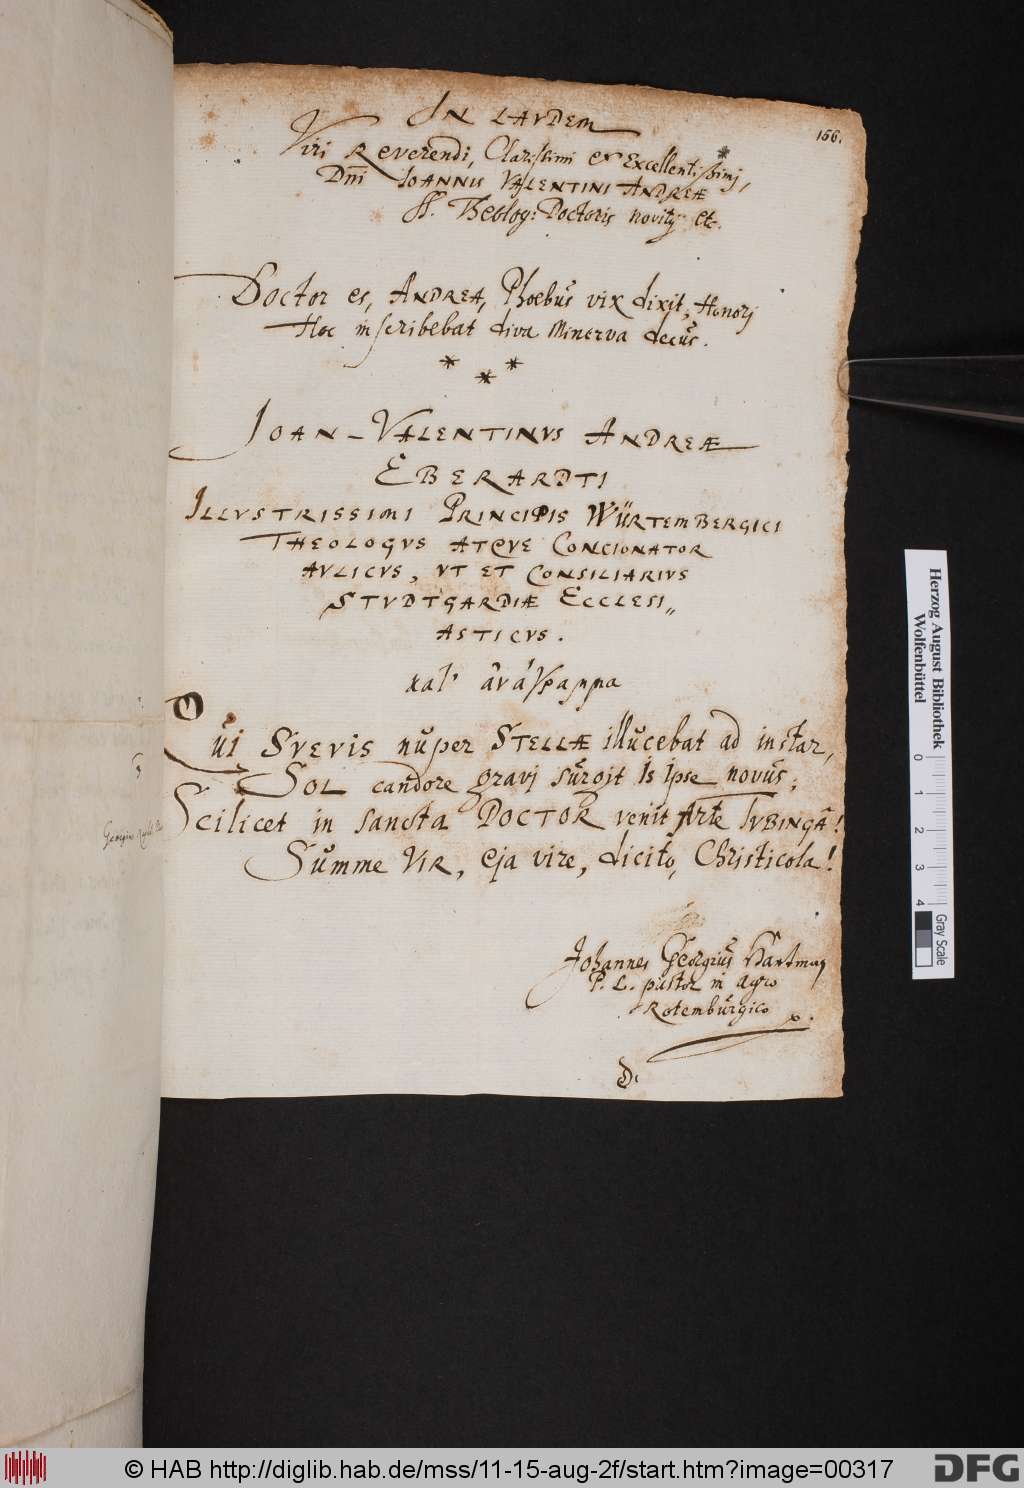 156.
IN LAVDEM
Viri Reverendi, Clarissimi et Excellentissimj,
Dni IOANNIS VALENTINI ANDREÆ
S. Theolog: Doctoris novitij etc.
Doctor es, ANDREA, Phoebus vix dixit, Honorj
Hoc inscribebat diva Minerva decus.
* * *
IOAN-VALENTINVS ANDREÆ
EBERARDTI
ILLVSTRISSIMI PRINCIPIS WÜRTEMBERGICI
THEOLOGVS ATQVE CONCIONATOR
AVLICVS, VT ET CONSILIARIVS
STVDTGARDIÆ ECCLESI„
ASTICVS.
κατ' ἀνάγραμμα
Qui SVEVIS nuper STELLÆ illucebat ad instar,
SOL candore gravj surgit Is Ipse novus;
Scilicet in sancta DOCTOR venit Arte TVBINGÂ!
Summe VIR, eja vire, dicito, Christicola!
Johannes Georgius Hartman
P. L. pastor in agro
Rotemburgico
D.
Herzog August Bibliothek
Wolfenbüttel
0 1 2 3 4
Gray Scale
© HAB http://diglib.hab.de/mss/11-15-aug-2f/start.htm?image=00317
DFG